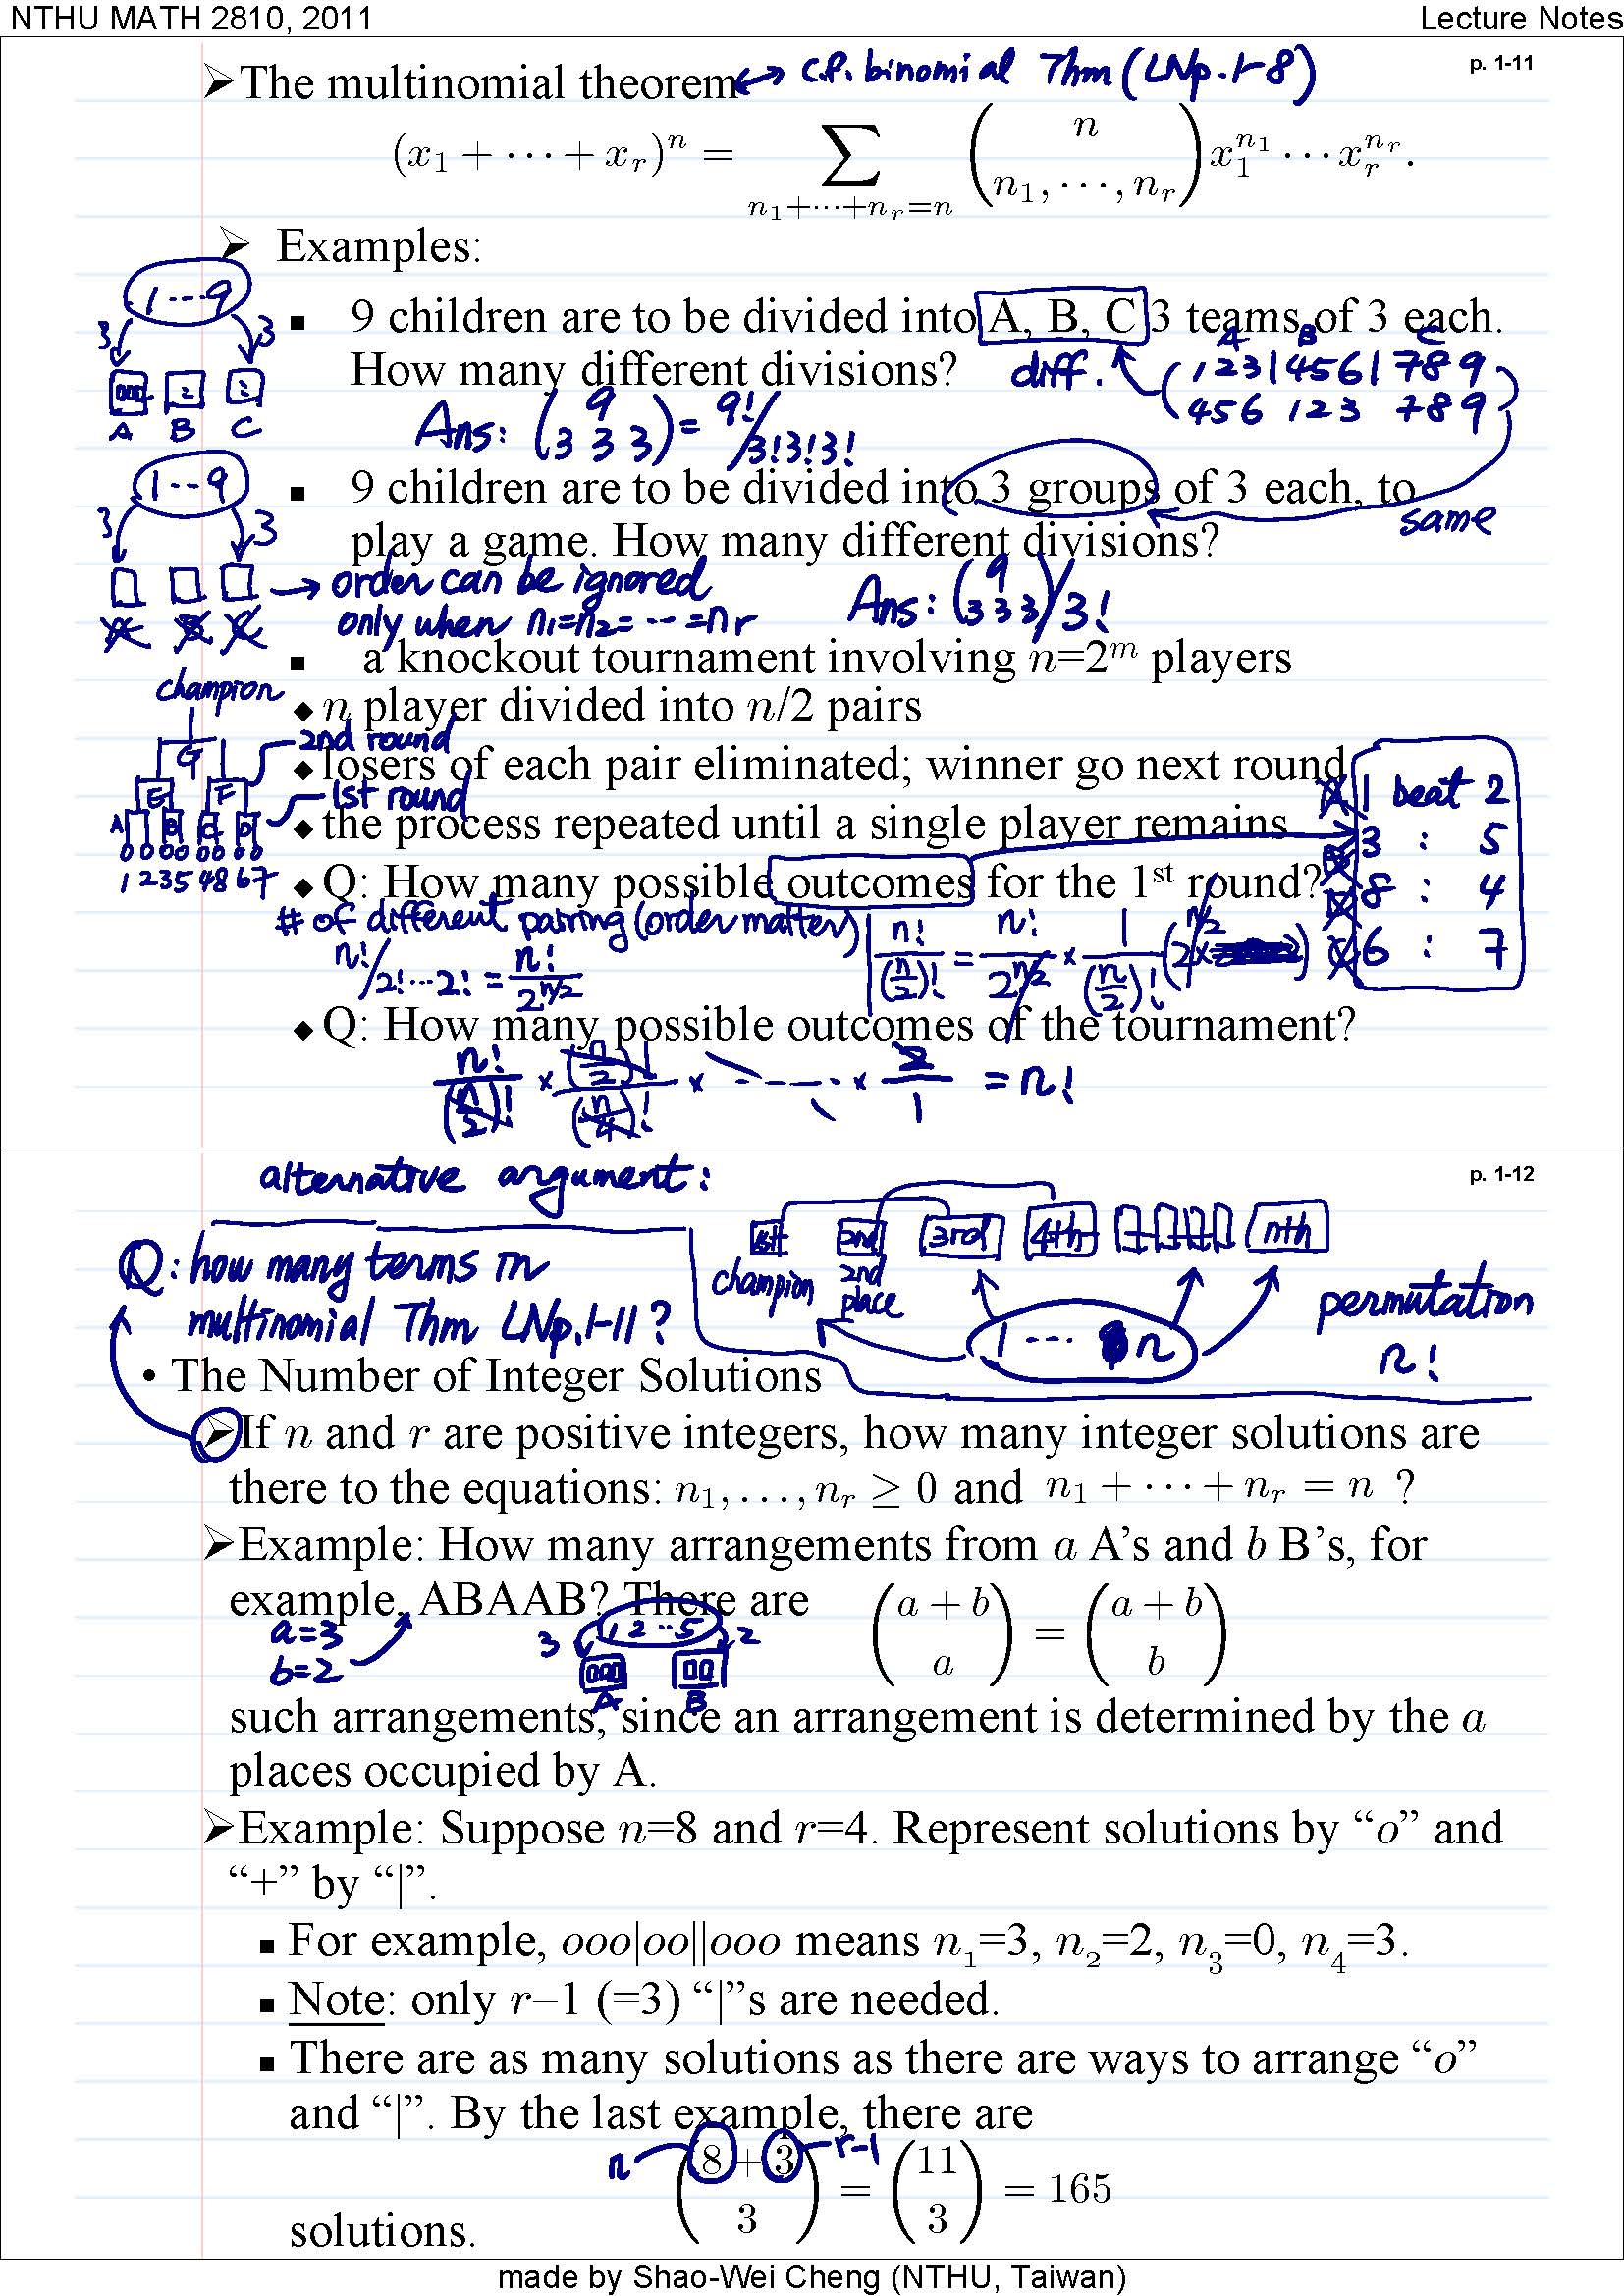 NTHU MATH 2810, 2011 Lecture Notes
p. 1-11
➢The multinomial theorem ↔ c.f. binomial Thm (LNp.1-8)
(x₁ + ⋯ + x_r)ⁿ = ∑_{n₁+⋯+n_r=n} (n choose n₁, ⋯, n_r) x₁^{n₁} ⋯ x_r^{n_r}.
➢ Examples:
1 --- 9
3 3
A B C
▪ 9 children are to be divided into A, B, C 3 teams of 3 each.
How many different divisions? diff.
A B C
(123|456|789)
(456 123 789)
Ans: (9 choose 3 3 3) = 9!/3!3!3!
1 -- 9
3 3
▪ 9 children are to be divided into 3 groups of 3 each, to
same
play a game. How many different divisions?
→ order can be ignored
only when n₁=n₂= ⋯ =n_r
Ans: (9 choose 3 3 3)/3!
A B C
▪ a knockout tournament involving n=2^m players
champion
◆n player divided into n/2 pairs
2nd round
◆losers of each pair eliminated; winner go next round
1st round
◆the process repeated until a single player remains
G
E F
A B C D
1 2 3 5 4 8 6 7
1 beat 2
3 : 5
8 : 4
6 : 7
◆Q: How many possible outcomes for the 1st round?
# of different pairing (order matter)
n!/2!⋯2! = n!/2^{n/2}
n!/(n/2)! = n!/2^{n/2} × 1/(n/2)! (2^{n/2})
◆Q: How many possible outcomes of the tournament?
n!/(n/2)! × (n/2)!/(n/4)! × ------ × 2/1 = n!
p. 1-12
alternative argument:
1st 2nd 3rd 4th nth
champion 2nd place
1 --- n
permutation
n!
Q: how many terms in
multinomial Thm LNp.1-11?
• The Number of Integer Solutions
➢If n and r are positive integers, how many integer solutions are
there to the equations: n₁, …, n_r ≥ 0 and n₁ + ⋯ + n_r = n ?
➢Example: How many arrangements from a A’s and b B’s, for
example, ABAAB? There are (a + b choose a) = (a + b choose b)
a=3
b=2
1 2 ·· 5
3 2
A B
such arrangements, since an arrangement is determined by the a
places occupied by A.
➢Example: Suppose n=8 and r=4. Represent solutions by “o” and
“+” by “|”.
▪ For example, ooo|oo||ooo means n₁=3, n₂=2, n₃=0, n₄=3.
▪ Note: only r−1 (=3) “|”s are needed.
▪ There are as many solutions as there are ways to arrange “o”
and “|”. By the last example, there are
n r-1
(8+3 choose 3) = (11 choose 3) = 165
solutions.
made by Shao-Wei Cheng (NTHU, Taiwan)